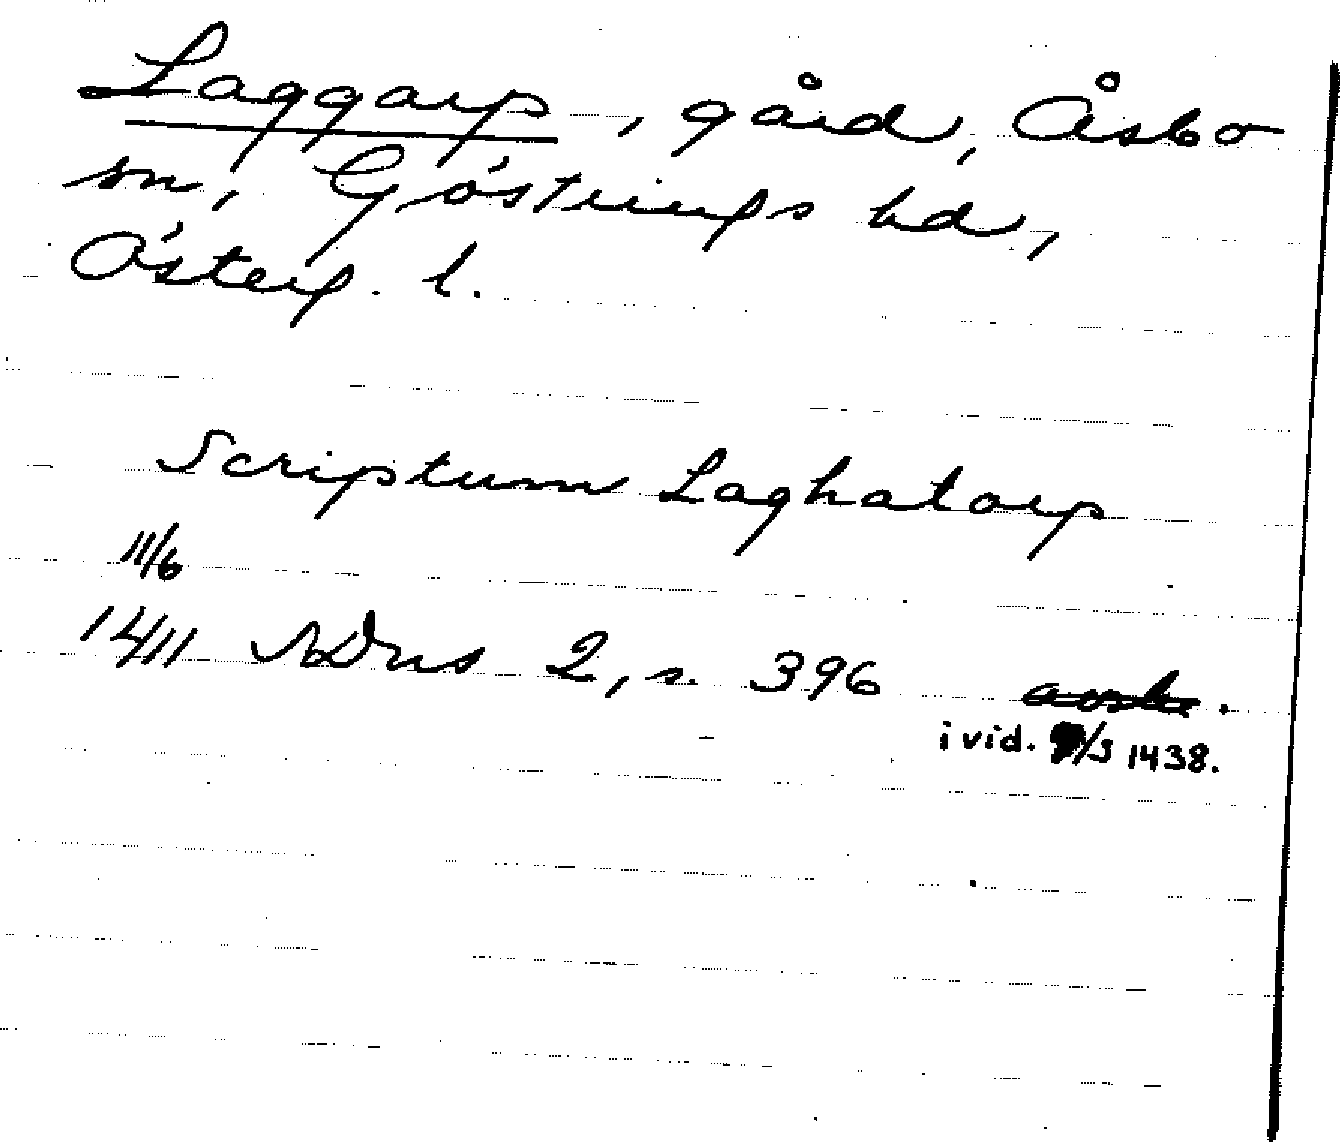 Laggarp, gård, Åsbo
sn, Göstrings hd,
Österg. l.
Scriptum Laghatorp
11/6
1411 SDns 2, s. 396
i vid. /3 1438.